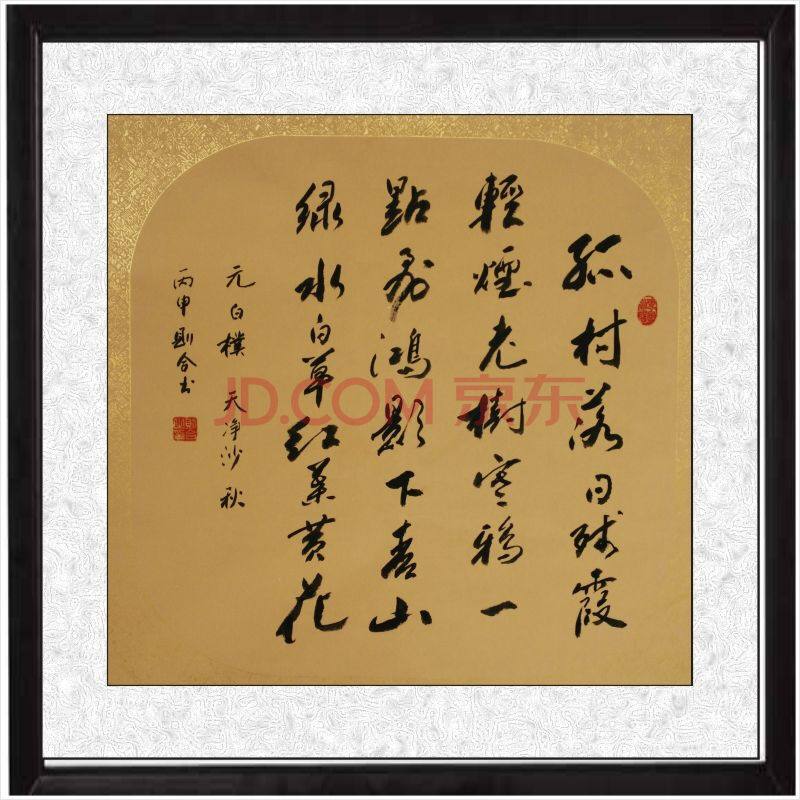 孤村落日残霞
輕煙老樹寒鴉一
點飛鴻影下青山
绿水白草红葉黄花
元白樸 天净沙 秋
丙申 合书
JD.COM 京东